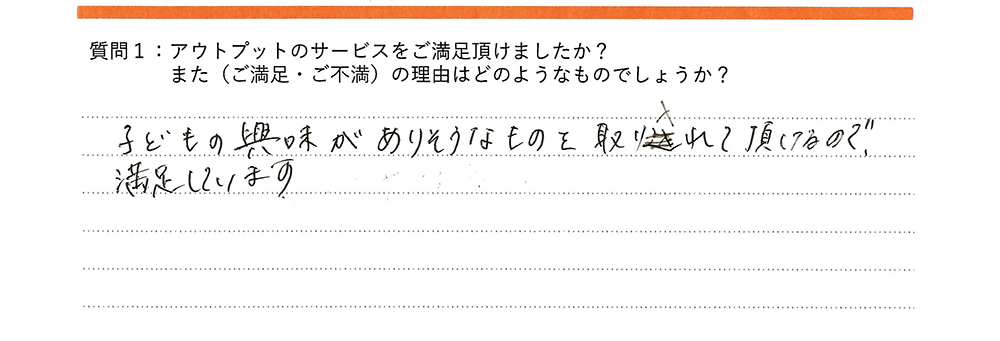 質問１：アウトプットのサービスをご満足頂けましたか？
また（ご満足・ご不満）の理由はどのようなものでしょうか？
子どもの興味がありそうなものを取り入れて頂けるので、
満足しています